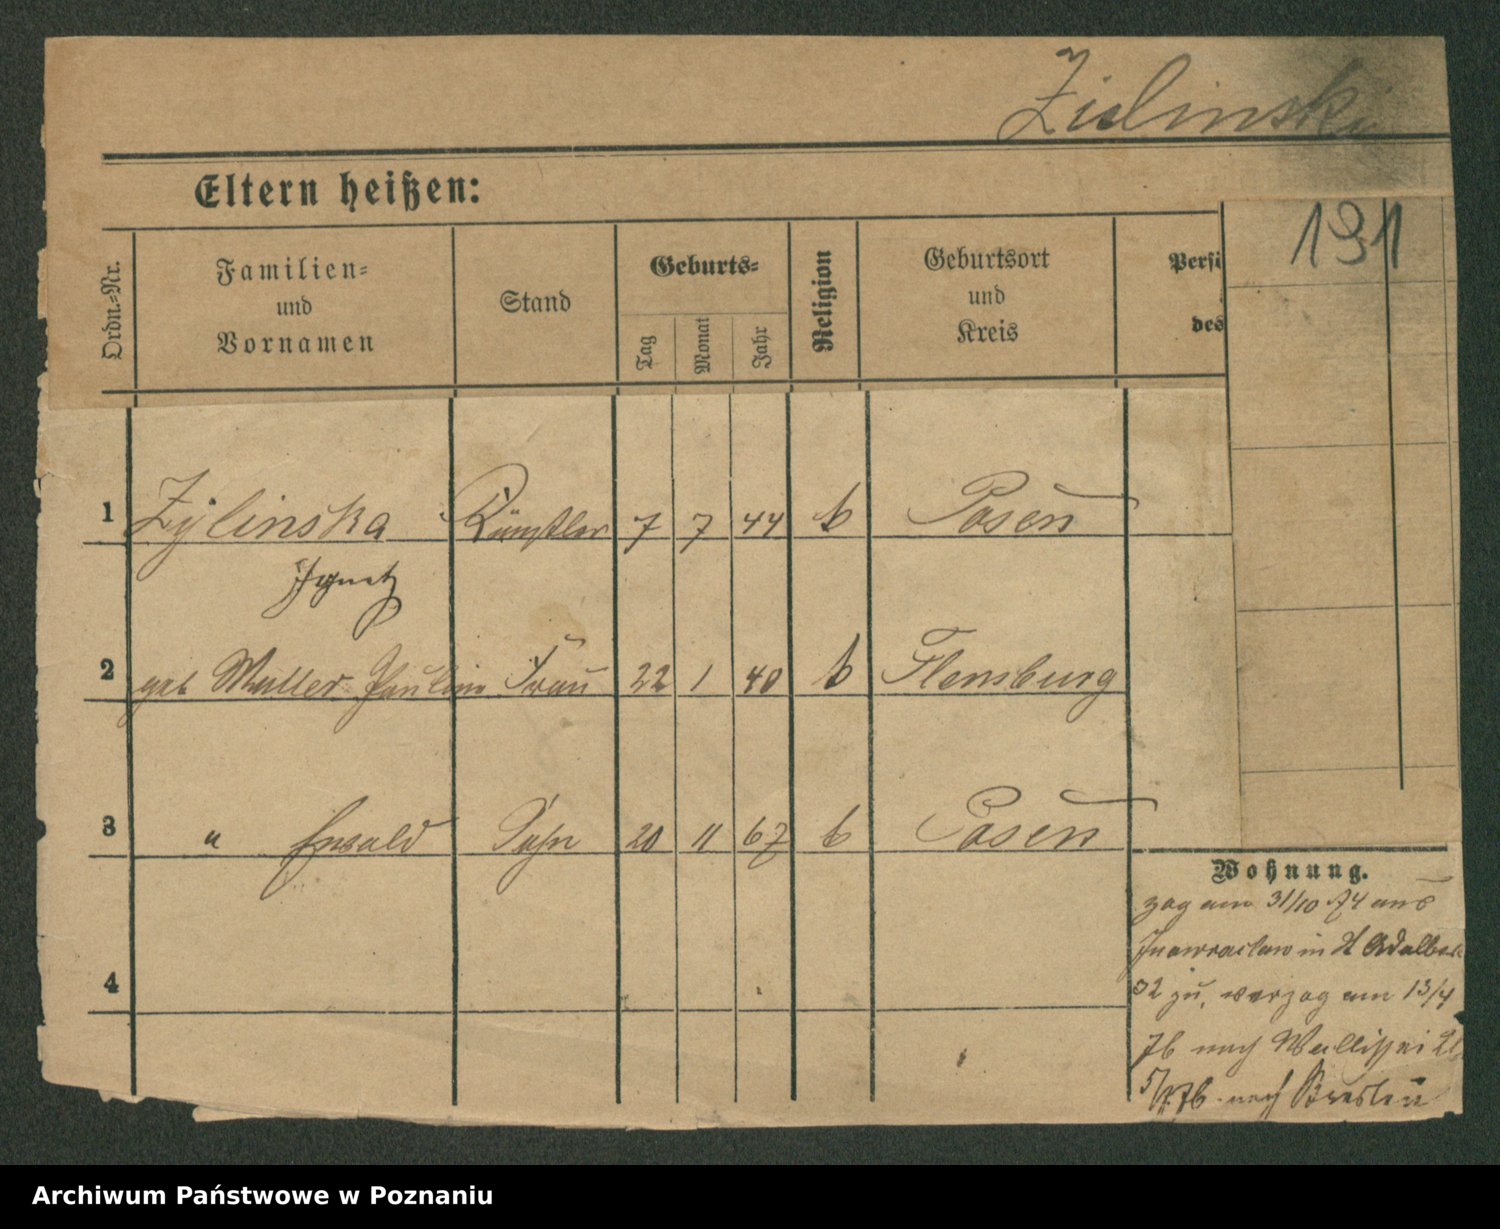 Zielinski
Eltern heißen:
191
Ordn.=Nr.
Familien=
und
Vornamen
Stand
Geburts=
Tag
Monat
Jahr
Religion
Geburtsort
und
Kreis
Persi
des
1 Zÿlinska Künstler 7 7 44 k Posen
Ignatz
2 geb Muller Paulin Frau 22 1 40 k Flensburg
3 " Ewald Sohn 20 11 67 k Posen
4
Wohnung.
zog am 31/10 74 aus
Inowraclaw in St Adalber
32 zu, verzog am 13/4
76 nach Wallischei
5/7 76 nach Breslau
Archiwum Państwowe w Poznaniu